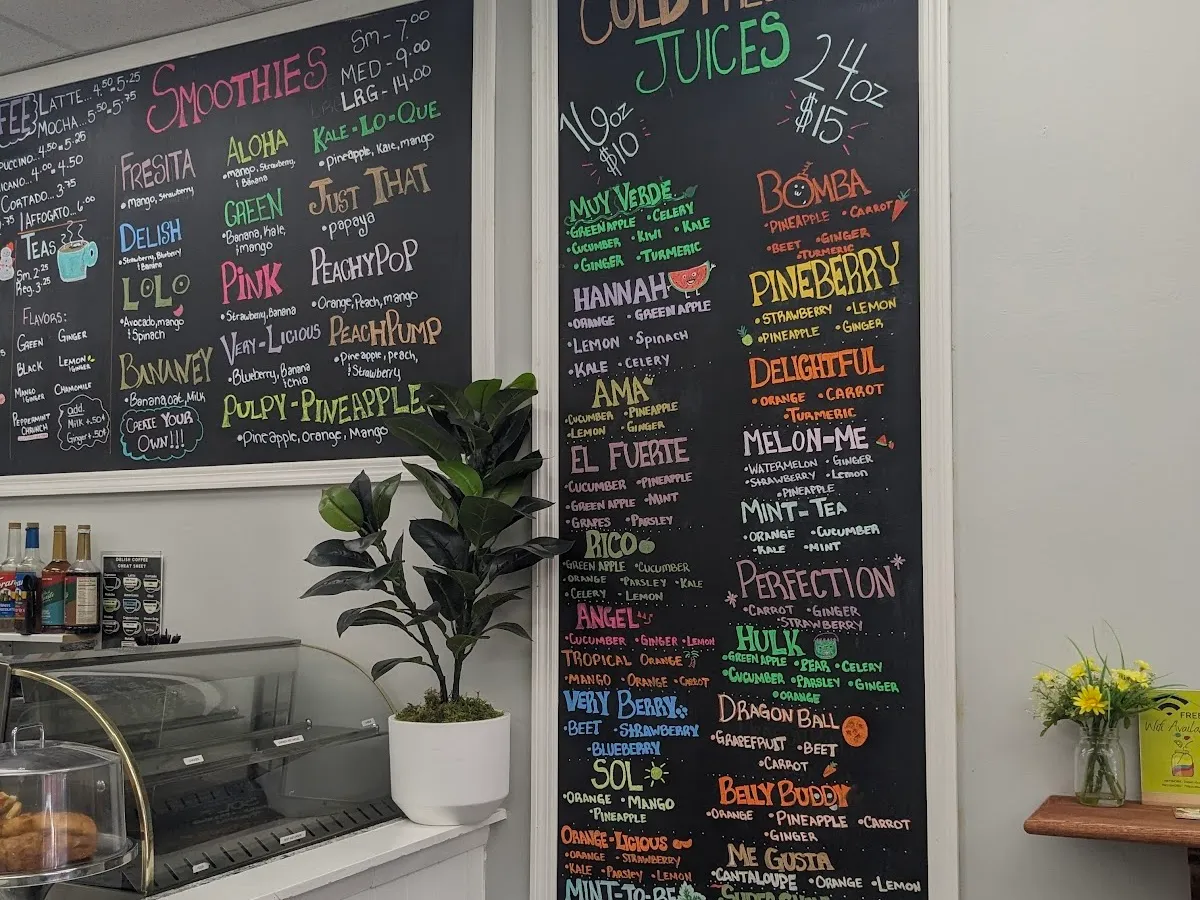 LATTE... 4.50 5.25
MOCHA... 5.50 5.75
4.50 5.25
4.00 4.50
CORTADO... 3.75
AFFOGATO.. 6.00
TEAS
Sm. 2.25
Reg. 3.25
FLAVORS:
GREEN GINGER
BLACK LEMON
GINGER
MANGO
GINGER
CHAMOMILE
PEPPERMINT
add:
Milk +.50¢
Ginger +.50¢
SMOOTHIES
Sm - 7.00
MED - 9.00
LRG - 14.00
FRESITA
• mango, Strawberry
DELISH
• Strawberry, Blueberry
& Banana
LOLO
• Avocado, mango
& Spinach
BANANEY
• Banana, oat, Milk
CREATE YOUR
OWN!!!
ALOHA
• mango, Strawberry,
& Banana
GREEN
• Banana, Kale,
& mango
PINK
• Strawberry, Banana
VERY-LICIOUS
• Blueberry, Banana
& chia
KALE-LO-QUE
• pineapple, Kale, mango
JUST THAT
• papaya
PEACHYPOP
• Orange, Peach, mango
PEACHPUMP
• Pineapple, peach,
& Strawberry
PULPY-PINEAPPLE
• Pineapple, Orange, Mango
COLD
JUICES
16oz
$10
24oz
$15
MUY VERDE
• GREEN APPLE • CELERY
• CUCUMBER • KIWI • KALE
• GINGER • TURMERIC
HANNAH
• ORANGE • GREEN APPLE
• LEMON • SPINACH
• KALE • CELERY
AMA
• CUCUMBER • PINEAPPLE
• LEMON • GINGER
EL FUERTE
• CUCUMBER • PINEAPPLE
• GREEN APPLE • MINT
• GRAPES • PARSLEY
RICO
• GREEN APPLE • CUCUMBER
• ORANGE • PARSLEY • KALE
• CELERY • LEMON
ANGEL
• CUCUMBER • GINGER • LEMON
TROPICAL ORANGE
• MANGO • ORANGE • CARROT
VERY BERRY
• BEET • STRAWBERRY
• BLUEBERRY
SOL
• ORANGE • MANGO
• PINEAPPLE
ORANGE-LICIOUS
• ORANGE • STRAWBERRY
• KALE • PARSLEY • LEMON
MINT-TO-BE
BOMBA
• PINEAPPLE • CARROT
• BEET • GINGER
• TURMERIC
PINEBERRY
• STRAWBERRY • LEMON
• PINEAPPLE • GINGER
DELIGHTFUL
• ORANGE • CARROT
• TURMERIC
MELON-ME
• WATERMELON • GINGER
• STRAWBERRY • LEMON
• PINEAPPLE
MINT-TEA
• ORANGE • CUCUMBER
• KALE • MINT
PERFECTION
• CARROT • GINGER
• STRAWBERRY
HULK
• GREEN APPLE • PEAR • CELERY
• CUCUMBER • PARSLEY • GINGER
• ORANGE
DRAGON BALL
• GRAPEFRUIT • BEET
• CARROT
BELLY BUDDY
• ORANGE • PINEAPPLE • CARROT
• GINGER
ME GUSTA
• CANTALOUPE • ORANGE • LEMON
DELISH COFFEE
CHEAT SHEET
FREE